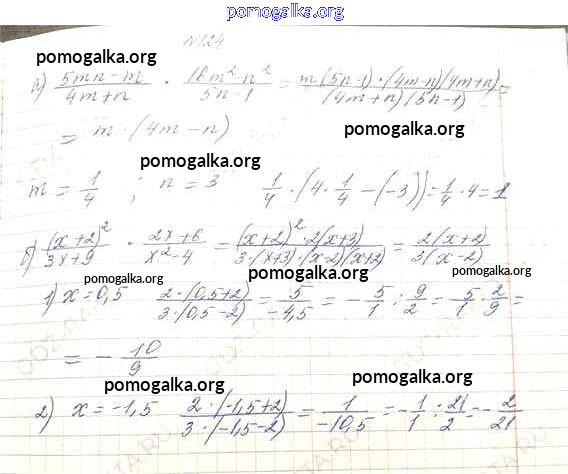 pomogalka.org
№124
pomogalka.org
а) (5mn - m)/(4m + n) · (16m² - n²)/(5n - 1) = (m(5n-1)·(4m-n)(4m+n))/((4m+n)(5n-1)) =
pomogalka.org
= m · (4m - n)
pomogalka.org
m = 1/4 ; n = 3 1/4 · (4 · 1/4 - (-3)) = 1/4 · 4 = 1
pomogalka.org
б) (x+2)²/(3x+9) · (2x+6)/(x²-4) = ((x+2)²·2(x+3))/(3·(x+3)·(x-2)(x+2)) = 2(x+2)/3(x-2)
pomogalka.org pomogalka.org
1) x = 0,5 2·(0,5+2)/3·(0,5-2) = 5/-4,5 = - 5/1 : 9/2 = - 5/1 · 2/9 =
= - 10/9
pomogalka.org
pomogalka.org
2) x = -1,5 2·(-1,5+2)/3·(-1,5-2) = 1/-10,5 = - 1/1 : 21/2 = - 2/21
pomogalka.org